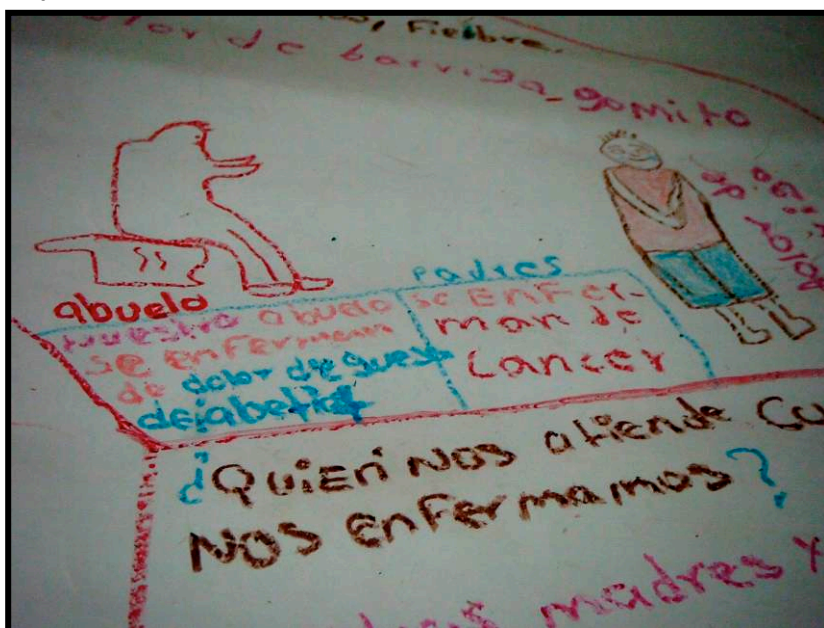 , Fiebre.
olor de barriga, gomito
Dolor de
abuelo
padres
nuestro abuelo
se enferman
de dolor de gues
deiabetiat
se Enfer-
man de
cancer
¿Quien NOS atiende Cu
NOS Enfermamos?
madres y